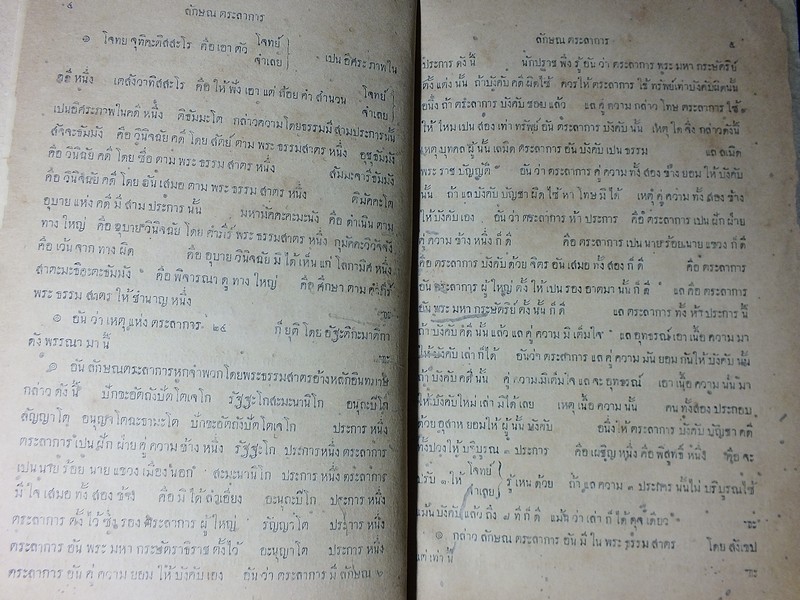 ๔
ลักษณ ตระลาการ
๑ โจทย จุทิตะติสสะโร คือ เอา ตัว โจทย์ จำเลย เปน อิศระ ภาพใน
คดี หนึ่ง เตสังวาทิสสะโร คือ ให้ พึ่ง เอา แต่ ถ้อย คำ สำนวน โจทย์ จำเลย
เปนอิศระภาพในคดี หนึ่ง คะติธัมมะโต กล่าวความโดยธรรมมี สามประการนี้
สัจจะธัมมัง คือ วินิจฉัย คดี โดย สัตย์ ตาม พระ ธรรม สาตร หนึ่ง อุชุธัมมัง
คือ วินิจฉัย คดี โดย ซื่อ ตาม พระ ธรรม สาตร หนึ่ง สัมมะจารีธัมมัง
คือ วินิจฉัย คดี โดย อัน เสมอ ตาม พระ ธรรม สาตร หนึ่ง
อุบาย แห่ง คดี มี สาม ประการ นั้น มหามัคคะคะมะนัง คือ ดำเนิน ตาม
ทาง ใหญ่ คือ อุบาย วินิจฉัย โดย คำภีร์ พระ ธรรมสาตร หนึ่ง กุมัคคะวิวัชชัง
คือ เว้น จาก ทาง ผิด คือ อุบาย วินิจฉัย มิ ได้ เห็น แก่ โลกามิศ หนึ่ง
คือ พิจารณา ดู ทาง ใหญ่ คือ ศึกษา ตาม คำภีร์
พระ ธรรม สาตร ให้ ชำนาญ หนึ่ง
๑ อัน ว่า เหตุ แห่ง ตระลาการ ๒๔ ก็ ยุติ โดย
ดัง พรรณา มา นี้
๑ อัน ลักษณตระลาการหกจำพวกโดยพระธรรมสาตรอ้างหลักอินทภาษ
กล่าว ดัง นี้ ปักขะอัตถังปัตโตเจโก รัฐฐะโกสะมะนานิโก
สัญญาโต อนุญาโตฉะธามะโต ปักขะอัตถังปัตโตเจโก ประการ หนึ่ง
ตระลาการ เปน ฝัก ฝ่าย คู่ ความ ข้าง หนึ่ง รัฐฐะโก ประการหนึ่ง ตระลาการ
เปน นาย ร้อย นาย แขวง เมือง นอก สะมะนานิโก ประการ หนึ่ง ตระลาการ
มี ใจ เสมอ ทั้ง สอง ข้าง คือ มิ ได้ ลำเอียง ประการ หนึ่ง
ตระลาการ ตั้ง ไว้ ซึ่ง รอง ตระลาการ ผู้ ใหญ่ รัญญาโต ประการ หนึ่ง
ตระลาการ อัน พระ มหา กระษัตราธิราช ตั้งไว้ อะนุญาโต ประการ หนึ่ง
ตระลาการ อัน คู่ ความ ยอม ให้ บังคับ เอง อัน ว่า ตระลาการ มี ลักษณ ๖
ลักษณ ตระลาการ
๕
ประการ ดัง นี้ นักปราช พึง รู้ อัน ว่า ตระลาการ พระ มหา กระษัตริย์
ตั้ง แต่ง นั้น ถ้า บังคับ คดี ผิดไซ้ ควร ให้ ตระลาการ ใช้ ทรัพย์เท่าบังคับผิดนั้น
อนึ่ง ถ้า ตระลาการ บังคับ ชอบ แล้ว แล คู่ ความ กล่าว โทษ ตระลาการ ไซ้
ให้ ไหม เปน สอง เท่า ทรัพย์ อัน ตระลาการ บังคับ นั้น เหตุ ใด จึง กล่าวดังนี้
เหตุ บุคคล ผู้ นั้น เลมิด ตระลาการ อัน บังคับ เปน ธรรม แล เลมิด
พระ ราช บัญญัติ อัน ว่า ตระลาการ คู่ ความ ทั้ง สอง ข้าง ยอม ให้ บังคับ
นั้น ถ้า แล บังคับ บัญชา ผิด ไซ้ หา โทษ มิ ได้ เหตุ คู่ ความ ทั้ง สอง ข้าง
ให้ บังคับ เอง อัน ว่า ตระลาการ ห้า ประการ คือ ตระลาการ เปน ฝัก ฝ่าย
คู่ ความ ข้าง หนึ่ง ก็ ดี คือ ตระลาการ เปน นาย ร้อย นาย แขวง ก็ ดี
คือ ตระลาการ บังคับ ด้วย จิตร อัน เสมอ ทั้ง สอง ก็ ดี คือ ตระลาการ
อัน ตระลาการ ผู้ ใหญ่ ตั้ง ให้ เปน รอง อาตมา นั้น ก็ ดี แล คือ ตระลาการ
อัน พระ มหา กระษัตริย์ ตั้ง นั้น ก็ ดี แล ตระลาการ ทั้ง ห้า ประการ นี้
ถ้า บังคับ คดี นั้น แล้ว แล คู่ ความ มิ เต็มใจ แล อุทธรณ์ เอา เนื้อ ความ มา
ให้ บังคับ เล่า ก็ ได้ อันว่า ตระลาการ แล คู่ ความ มัน ยอม กันให้ บังคับ นั้น
ถ้า บังคับ คดี นั้น คู่ ความ มิเต็มใจ แล จะ อุทธรณ์ เอา เนื้อ ความ นั้น มา
ให้ บังคับใหม่ เล่า มิ ได้ เลย เหตุ เนื้อ ความ นั้น คน ทั้งสอง ประกอบ
ด้วย อุสาห ยอมให้ ผู้ นั้น บังคับ อนึ่ง ให้ ตระลาการ บังคับ บัญชา คดี
ทั้งปวง ให้ บริบูรณ ๓ ประการ คือ เผชิญ หนึ่ง คือ พิสูทธิ์ หนึ่ง คือ จะ
ปรับ ๑ ให้ โจทย์ จำเลย รู้ เหน ด้วย ถ้า แล ความ ๓ ประการ นั้นไม่ บริบูรณไซ้
แม้น บังคับ แล้ว ถึง ๗ ที ก็ ดี แม้น ว่า เล่า ก็ ได้ ดุจ เดียว ฯะ
๑ กล่าว ลักษณ ตระลาการ อัน มี ใน พระ ธรรม สาตร โดย สังเขป
แต่ เท่า นี้ ฯะ